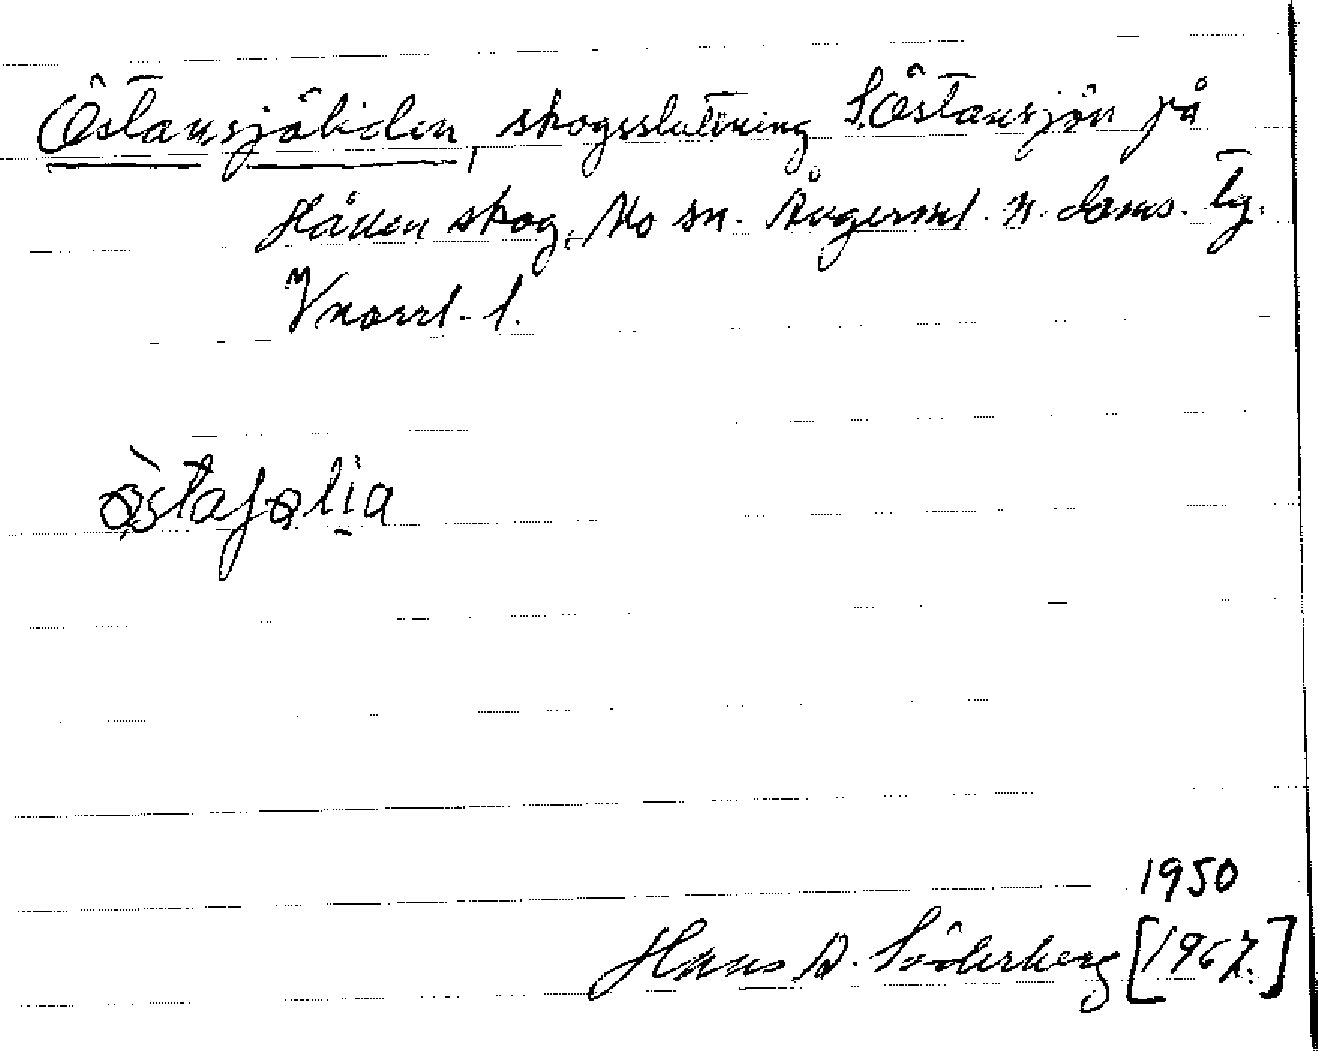 Östansjöliden, skogssluttning S. Östansjön på
Hållen skog, Mo sn. Ångerml. n. doms. tg.
Vnorrl. l.
1950
Hans A. Söderberg [1967.]